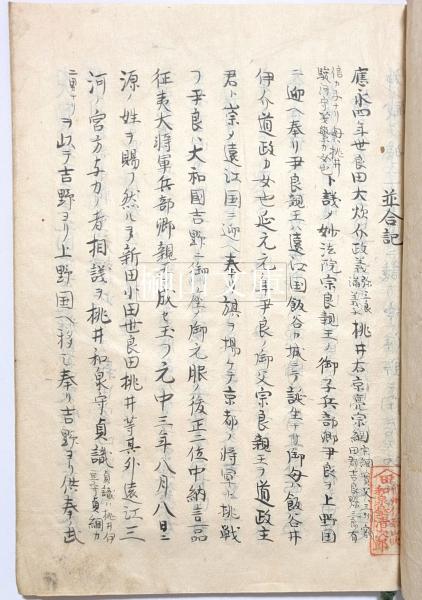 並合記
應永四年世良田大炊介政義 桃井右京亮宗綱
ト議メ妙法院宗良親王ノ御子兵部卿尹良ヲ上野國
ニ迎ヘ奉リ尹良親王ハ遠江国飯谷ノ城ニテ誕生御母ハ飯谷井
伊介道政カ女也延元元年尹良ノ御父宗良親王ヲ道政主
君ト崇メ遠江国ニ迎ヘ奉リ旗ヲ揚ケテ京都ノ将軍ト挑戦
フ尹良ハ大和國吉野ニテ御元服後正三位中納言一品
征夷大将軍兵部卿親王ニ成セ玉フ元中三年八月八日ニ
源ノ姓ヲ賜フ然ルヲ新田小田世良田桃井等其外遠江三
河ノ宮方与力ノ者相議ヲ桃井和泉守貞識 貞識ハ桃井伊
ヲ以テ吉野ヨリ上野国ヘ移シ奉リ吉野ヨリ供奉ノ武